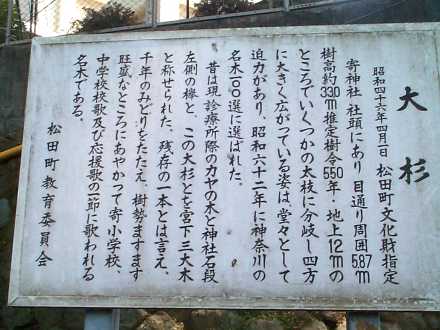 大杉
昭和四十六年四月一日 松田町文化財指定
寄神社 社頭にあり 目通り周囲5.87m
樹高約33.0m推定樹令550年・地上12mの
ところでいくつかの太枝に分岐し四方
に大きく広がっている姿は、堂々として
迫力があり、昭和六十二年に神奈川の
名木一〇〇選に選ばれた。
昔は現診療所際のカヤの木と神社石段
左側の欅と、この大杉とを宮下三大木
と称せられた、残存の一本とは言え、
千年のみどりをたたえ、樹勢ますます
旺盛なところにあやかって寄小学校、
中学校校歌及び応援歌の一節に歌われる
名木である。
松田町教育委員会